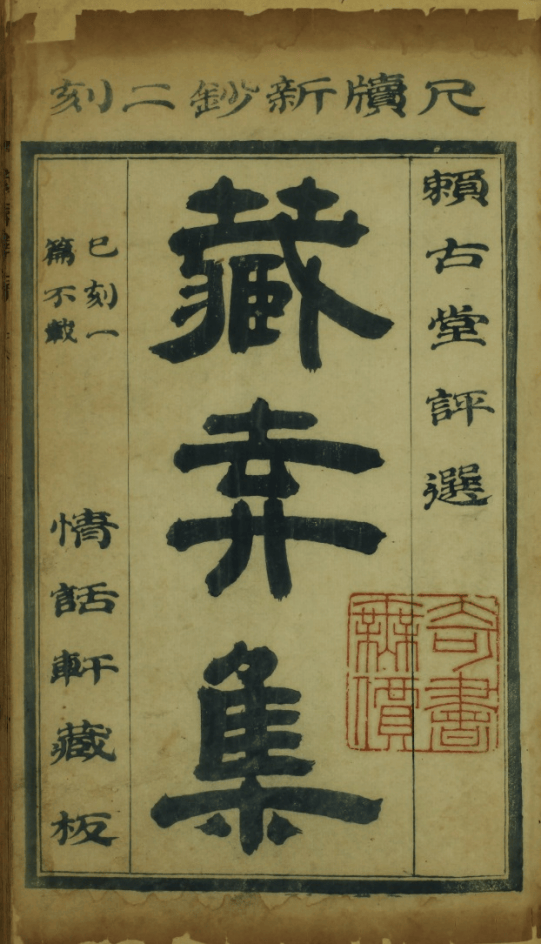 尺牘新鈔二刻
賴古堂評選
奇書
無價
藏弆集
已刻一
篇不載
情話軒藏板